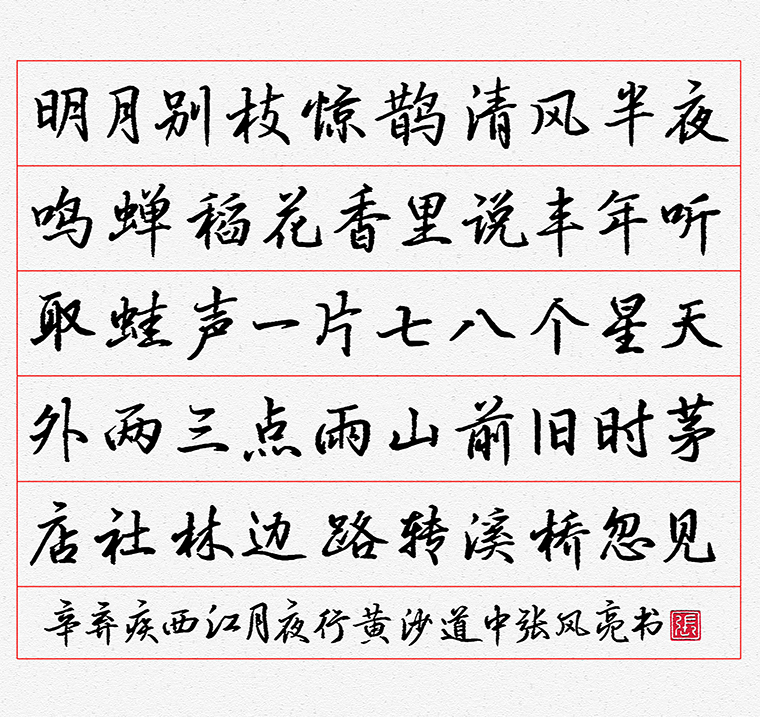 明月别枝惊鹊清风半夜
鸣蝉稻花香里说丰年听
取蛙声一片七八个星天
外两三点雨山前旧时茅
店社林边路转溪桥忽见
辛弃疾西江月夜行黄沙道中张风亮书
張